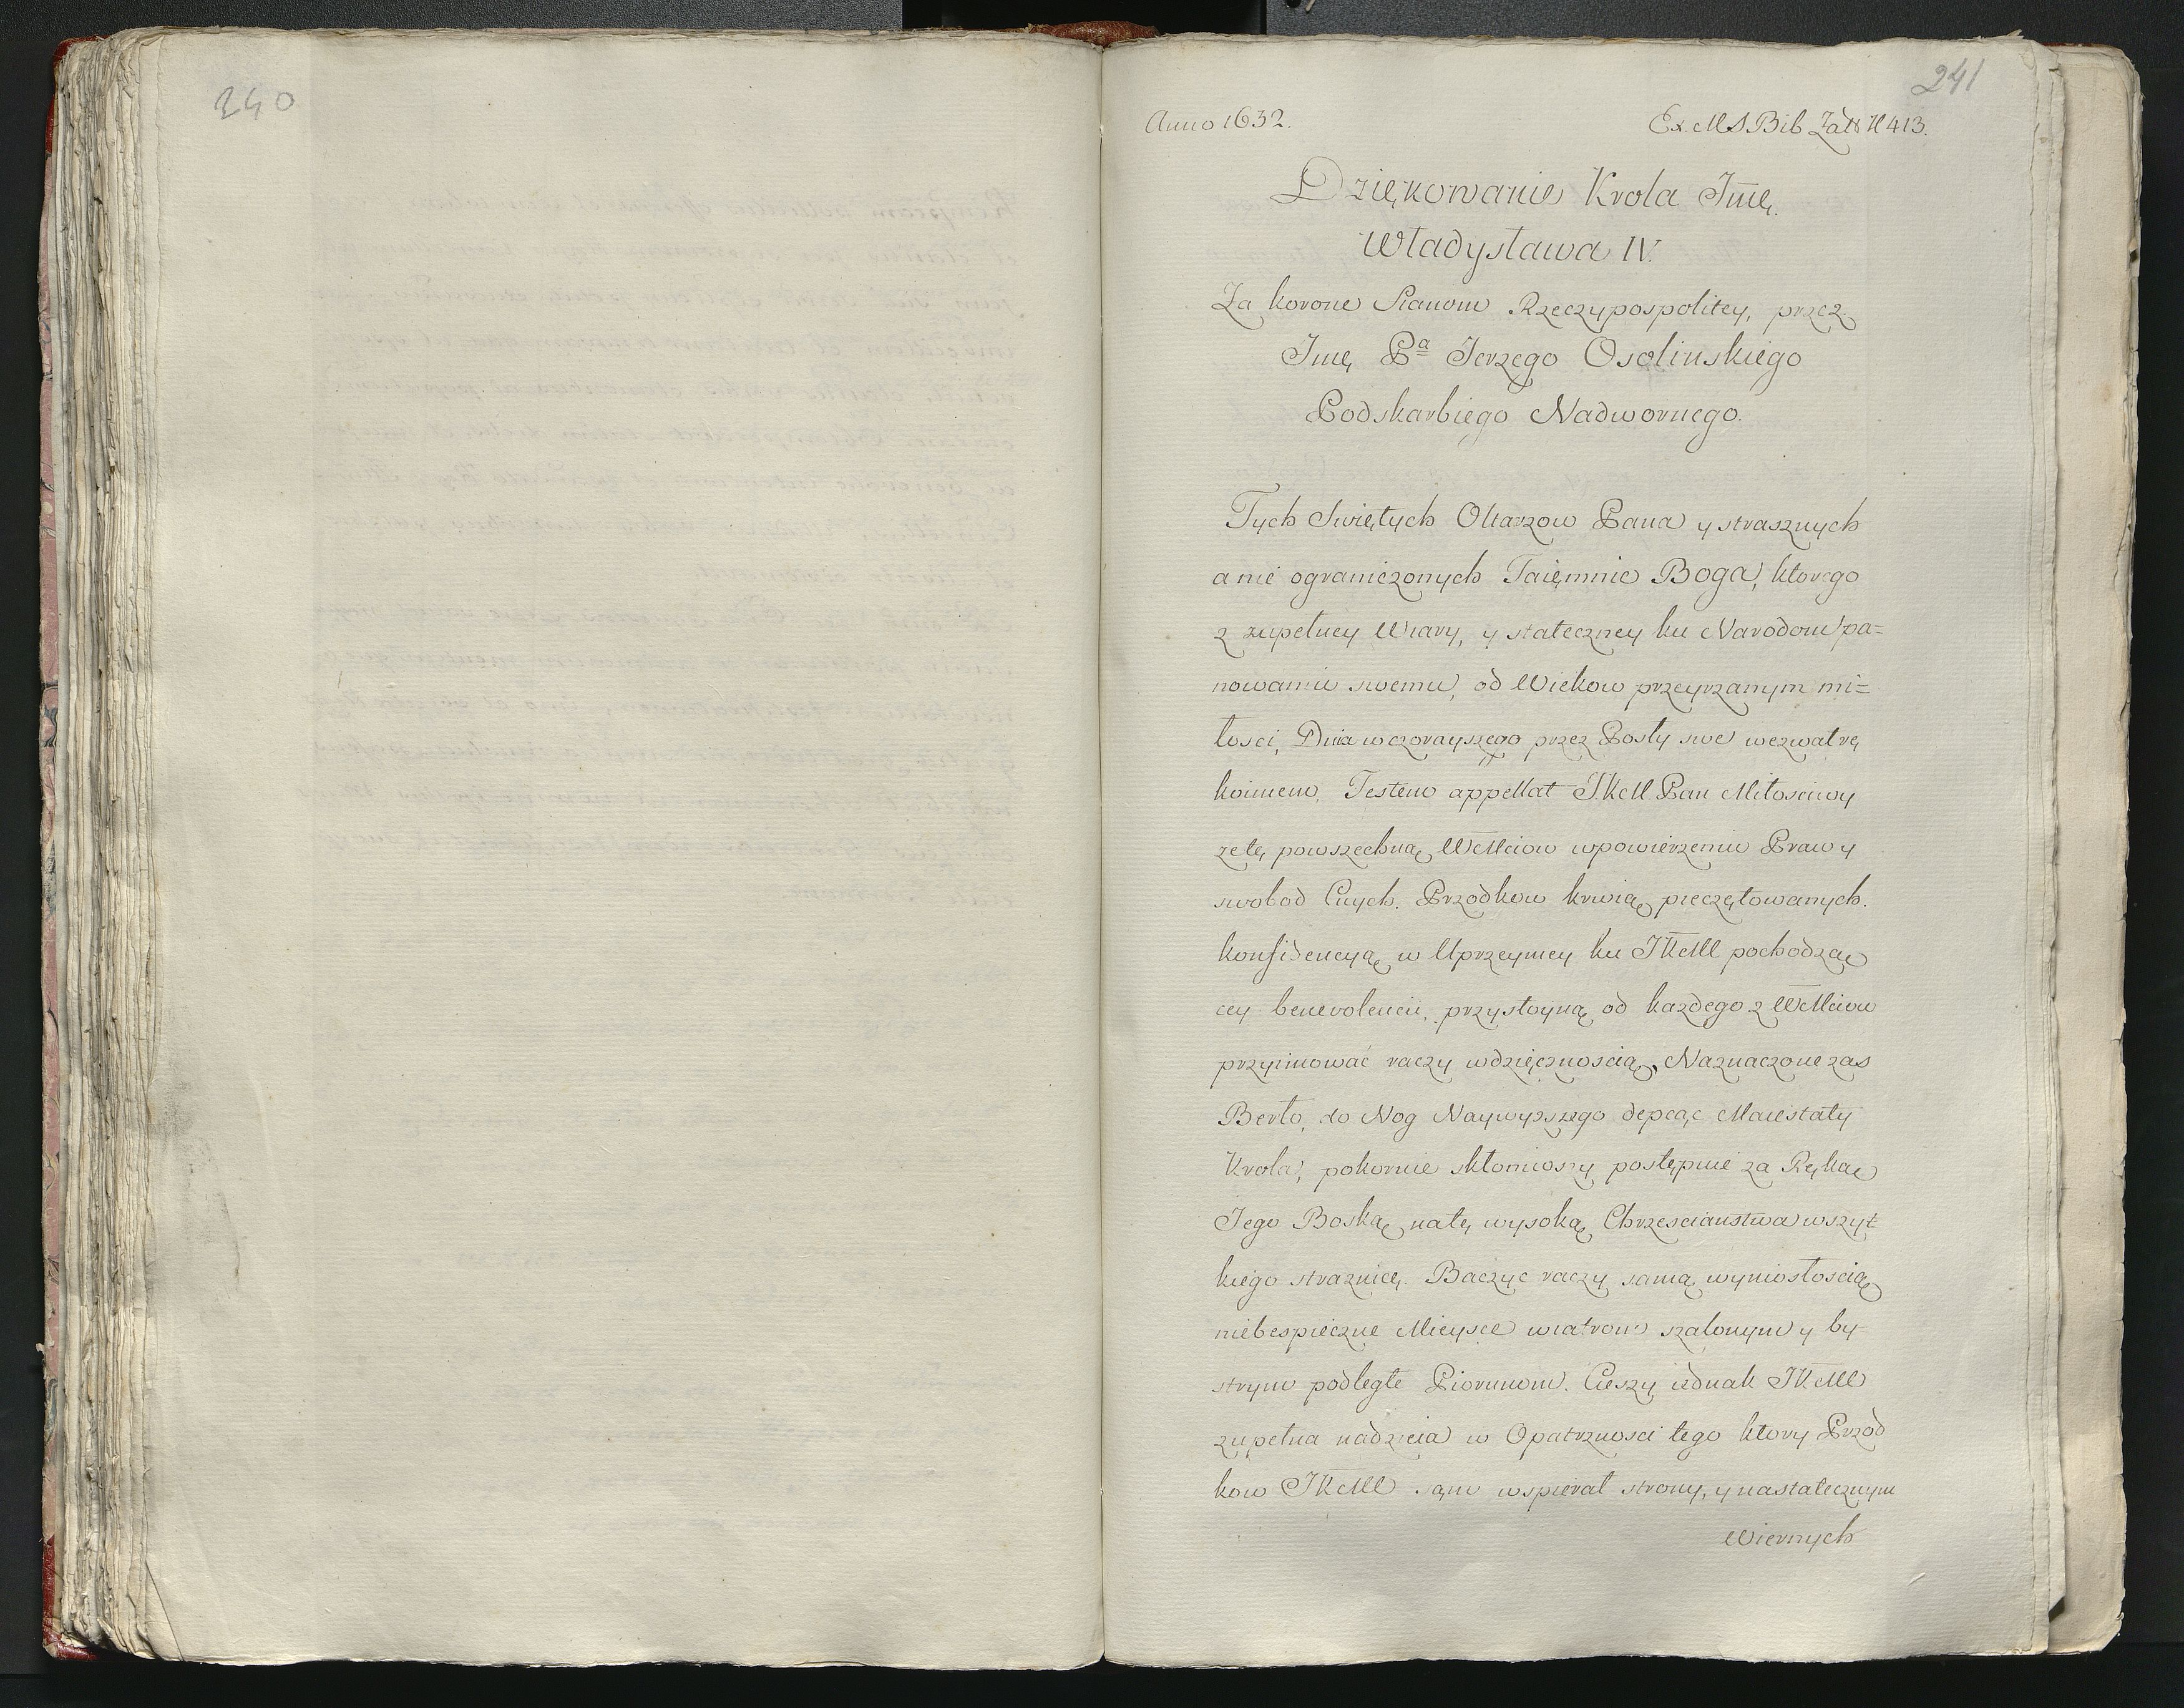 240
241
Anno 1632.
Ex MS Bib Zał: N 413.
Dziękowanie Krola Jmę.
Władysława IV.
Za korone Stanom Rzeczypospolitey, przez
Jmę Pa Jerzego Osolinskiego
Podskarbiego Nadwornego.
Tych Swiętych Ołtarzow Pana y strasznych
a nie ograniczonych Taięmnic Boga, ktorego
z zupełney Wiary, y stateczney ku Narodom pa=
nowaniu swemu, od Wiekow przeyrzanym mi=
łosci, Dnia wczorayszego przez Posły swe wezwał rę
koimem, Testem appellat JKM Pan Miłosciwy
zetę powszechną WMciow wpowierzeniu Praw y
swobod Cnych. Przodkow krwią pieczętowanych.
konfidencyą w Uprzeymey ku JKM pochodzac
cey benevolencii, przystoyną od kazdego z WMciow
przyimować raczy wdzięcznoscią, Naznaczone zas
Berło, do Nog Naywyzszego depcąc Maiestaty
Krola, pokornie skłoniwszy postępuie za Ręką
Jego Boską natę wysoką Chrzescianstwa wszyt
kiego straznicę. Baczyc raczy samą wyniosłoscią
niebespieczne Mieysce wiatrom szalonym y by-
strym podległe Piorunom. Cieszy iednak JKM
zupełna nadzieia w Opatrznosci tego ktory Przod
kow JKM sam wspierał strony, y nastatecznym
Wiernych